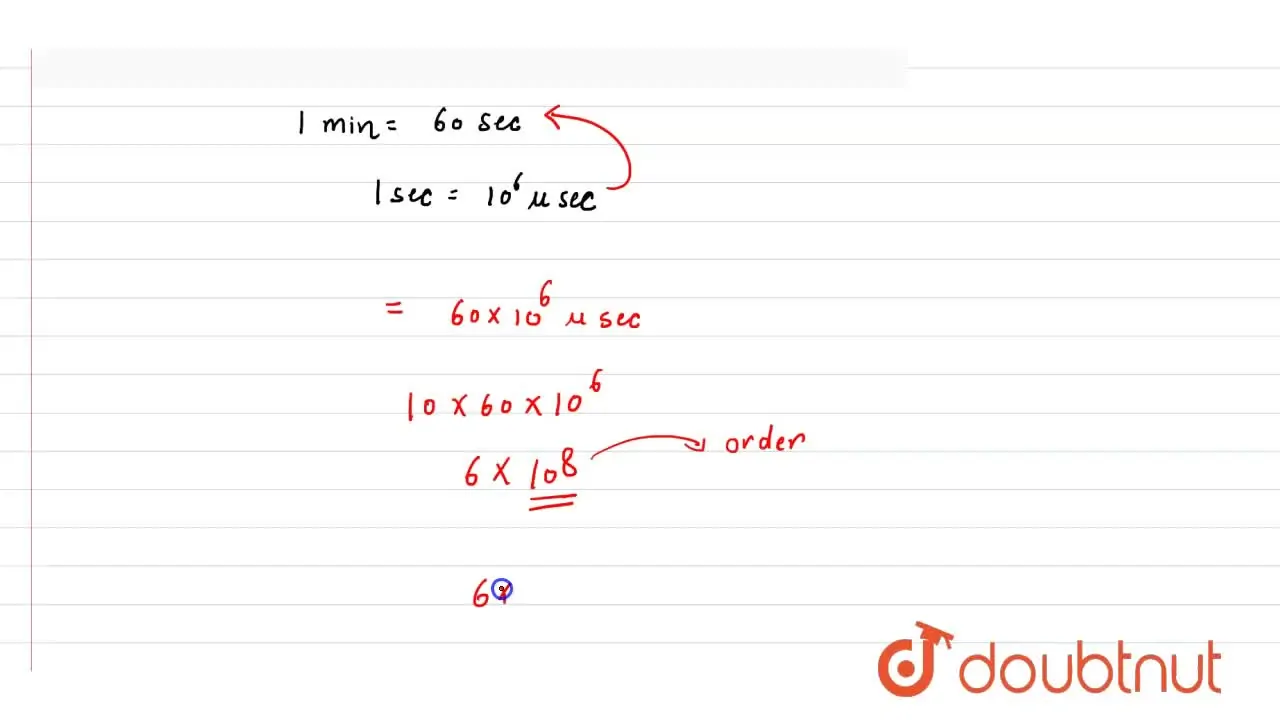 1 min = 60 sec
1 sec = 10⁶ μ sec
= 60 × 10⁶ μ sec
10 × 60 × 10⁶
6 × 10⁸ → order
6×
doubtnut